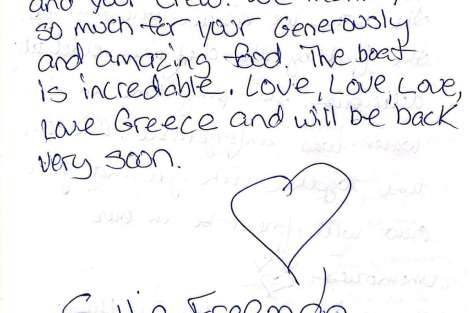 and your crew.
so much for your Generously
and amazing food. The boat
is incredable. Love, Love, Love,
Love Greece and will be back
very soon.